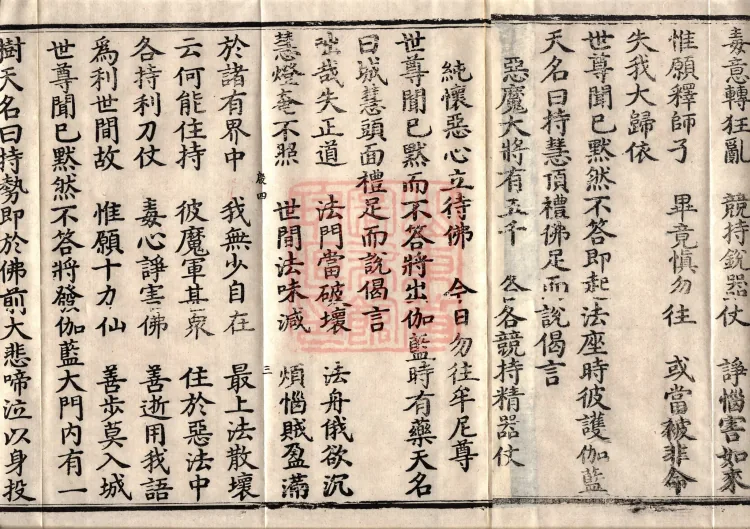 毒意轉狂亂　競持銳器仗　諍惱害如來
惟願釋師子　畢竟慎勿往　或當被非命
失我大歸依
世尊聞已黙然不答即起法座時彼護伽藍
天名曰持慧頂禮佛足而說偈言
惡魔大將有五千　各各競持精器仗
純懷惡心立待佛　今日勿往牟尼尊
世尊聞已黙而不答將出伽藍時有藥天名
曰城慧頭面禮足而說偈言
咄哉失正道　法門當破壞　法舟俄欲沉
慧燈奄不照　世間法味減　煩惱賊盈滿
於諸有界中　我無少自在　最上法散壞
云何能住持　彼魔軍甚衆　住於惡法中
各持利刀仗　毒心諍害佛　善逝用我語
為利世間故　惟願十力仙　善步莫入城
世尊聞已黙然不答將發伽藍大門內有一
樹天名曰持勢即於佛前大悲啼泣以身投